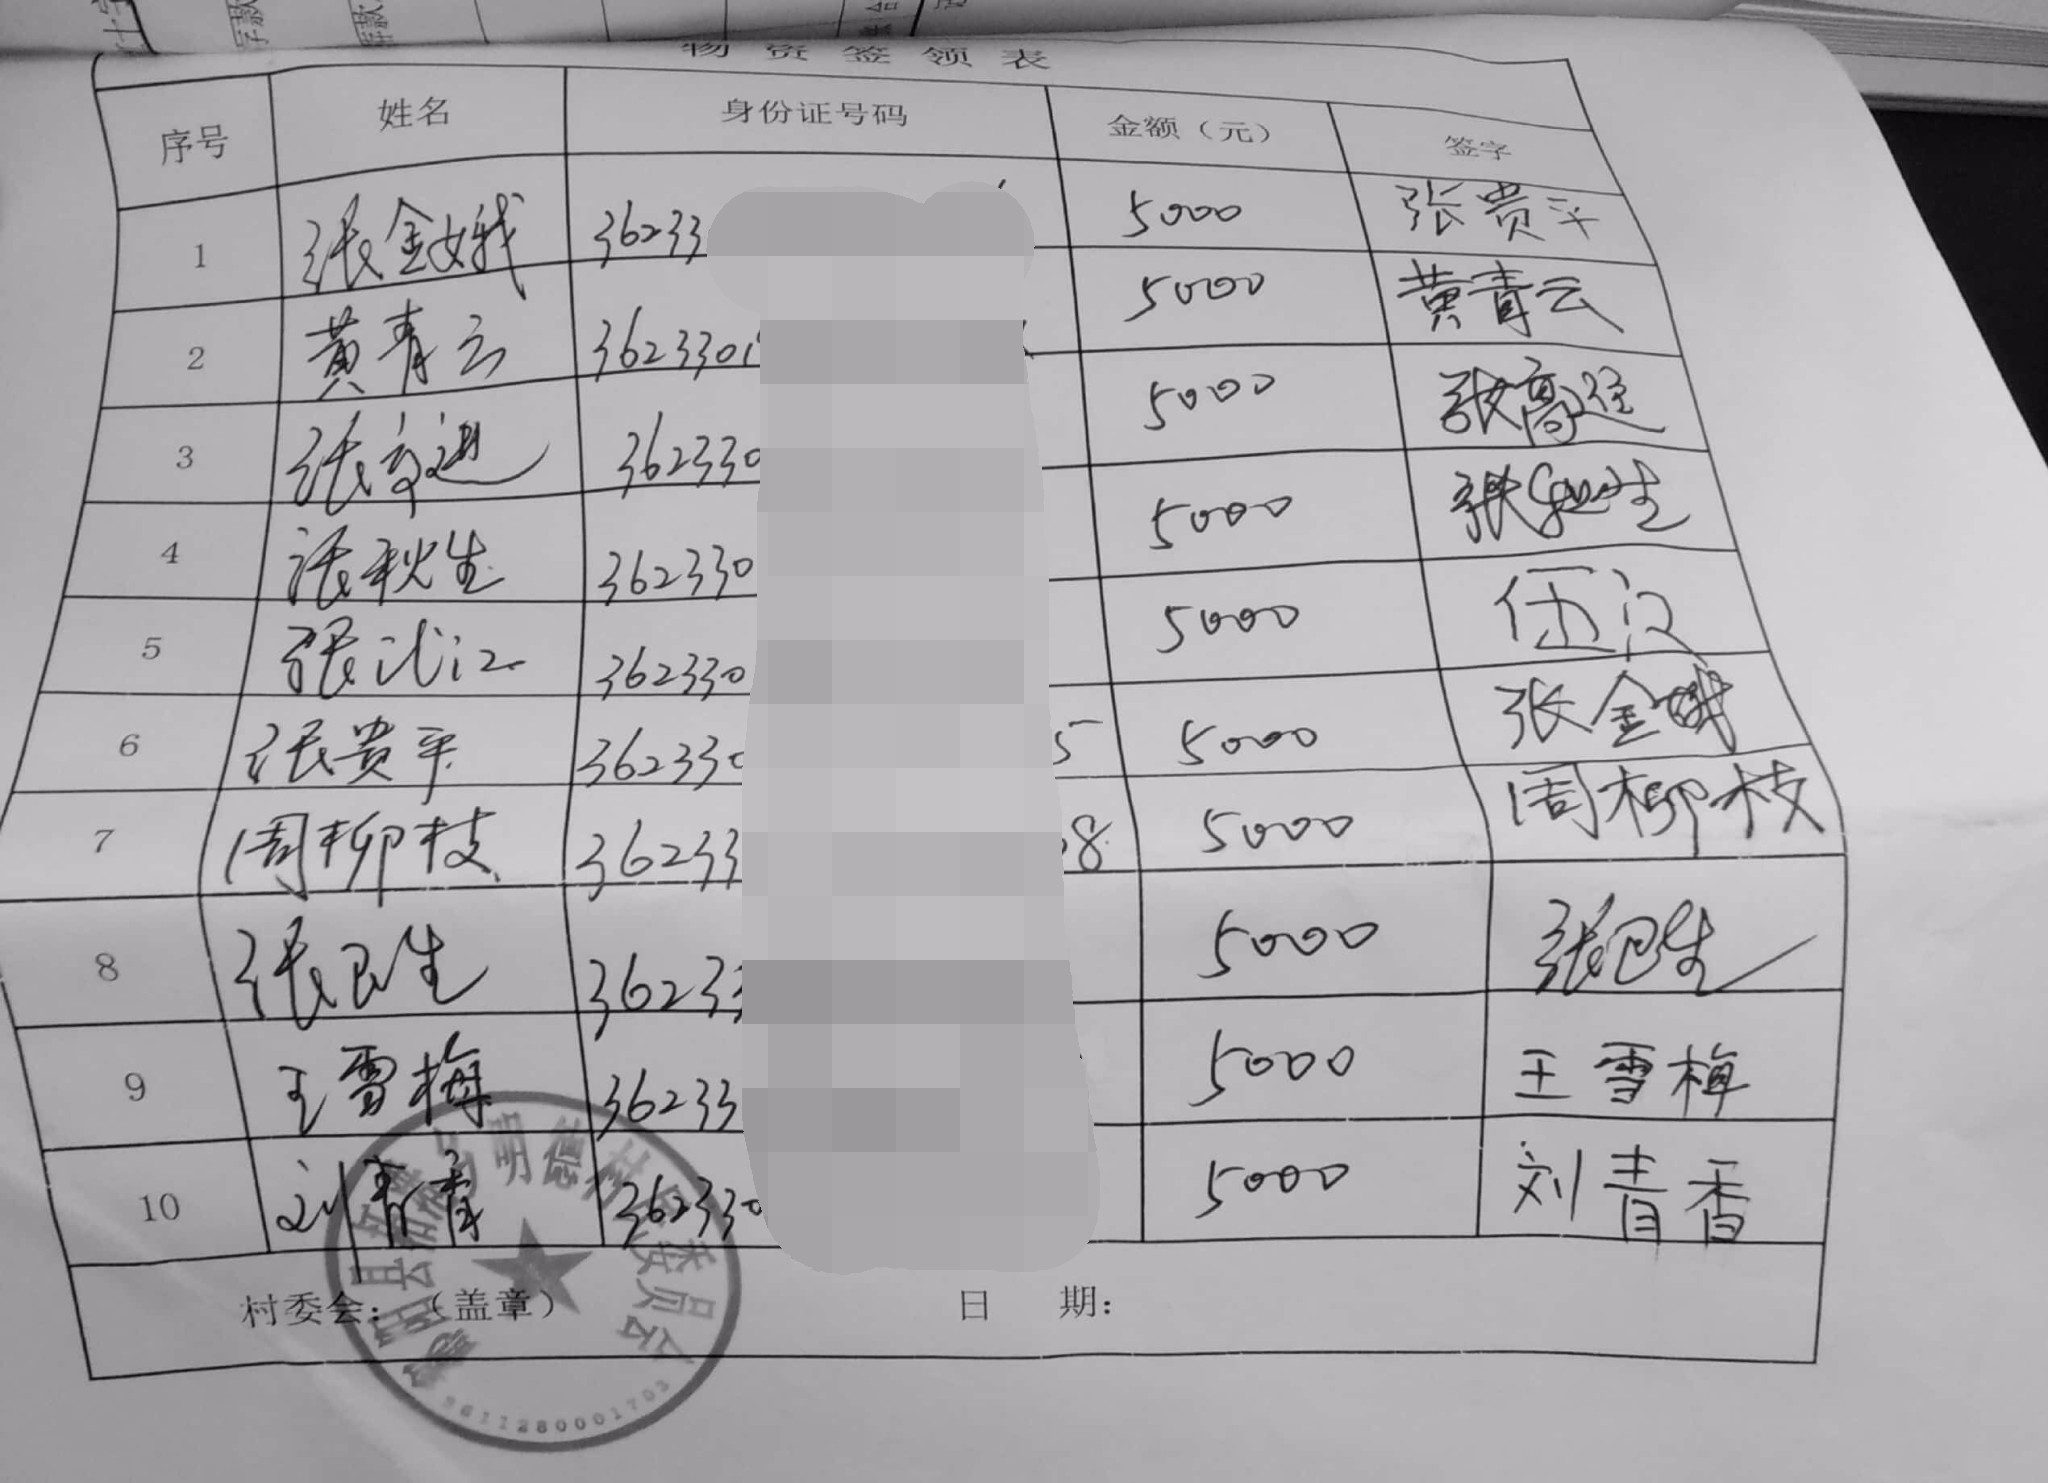 物资签领表
序号 姓名 身份证号码 金额（元） 签字
1 张金娥 36233 5000 张贵平
2 黄青云 3623301 5000 黄青云
3 张高进 362330 5000 张高进
4 张秋生 362330 5000 张秋生
5 张 江 362330 5000
6 张贵平 362330 5 5000 张金娥
7 周柳枝 36233 8 5000 周柳枝
8 张卫生 36233 5000 张卫生
9 王雪梅 36233 5000 王雪梅
10 刘青香 362330 5000 刘青香
村委会：（盖章） 日 期：
明德村 委员会
3611280001703